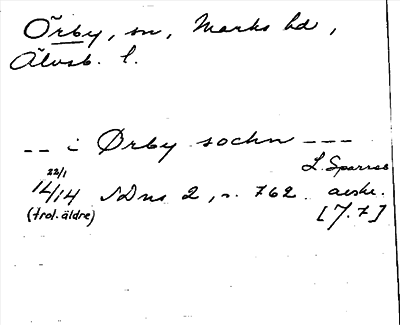 Örby, sn, Marks hd,
Älvsb. l.
-- i Ørby sochn ---
22/1 L. Sparres
14/14 SDns 2, n. 762 avskr.
(trol. äldre) [J. 7]